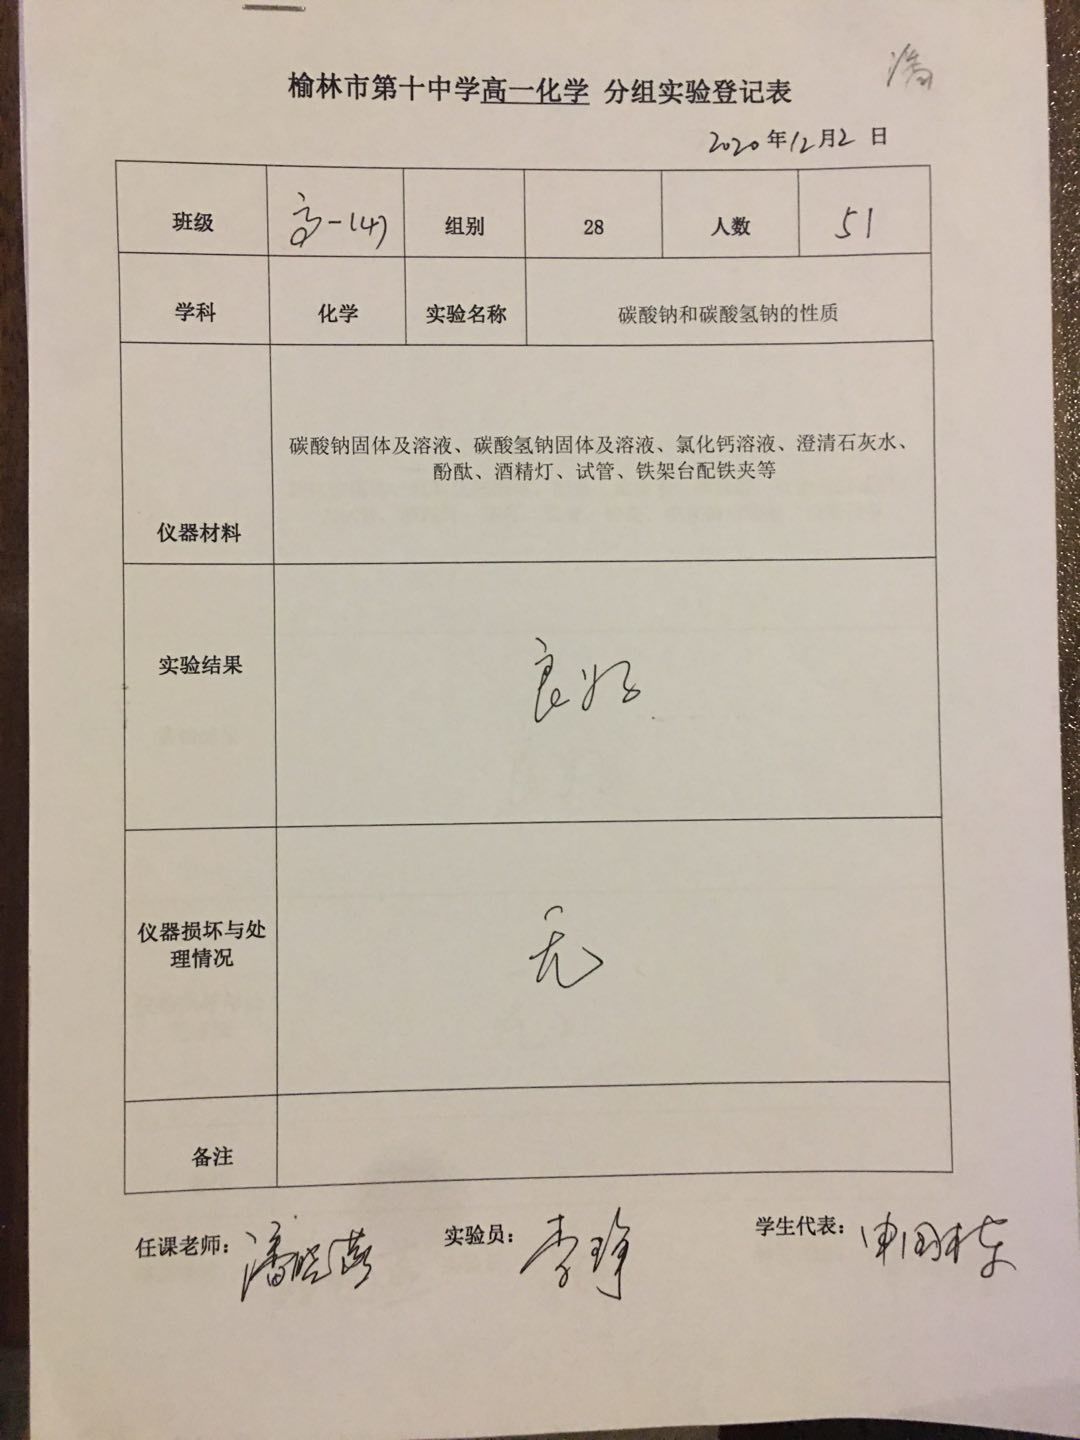 潘
榆林市第十中学高一化学 分组实验登记表
2020年12月2日
班级 高一(4) 组别 28 人数 51
学科 化学 实验名称 碳酸钠和碳酸氢钠的性质
仪器材料
碳酸钠固体及溶液、碳酸氢钠固体及溶液、氯化钙溶液、澄清石灰水、
酚酞、酒精灯、试管、铁架台配铁夹等
实验结果 良好
仪器损坏与处
理情况
无
备注
任课老师: 潘晓燕 实验员: 李 学生代表: 申国栋